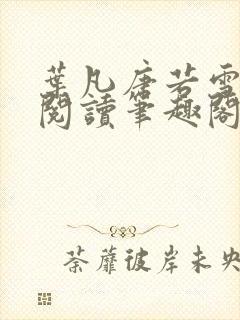 葉凡唐若雪
閱讀筆趣閣
荼蘼彼岸未央